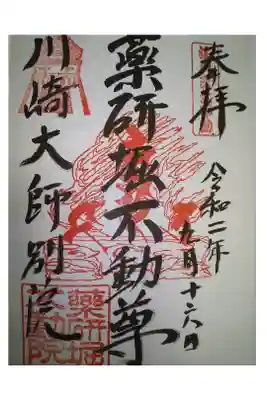 奉拝
令和二年
九月十六日
薬研堀不動尊
川崎大師別院
薬研堀
不動院